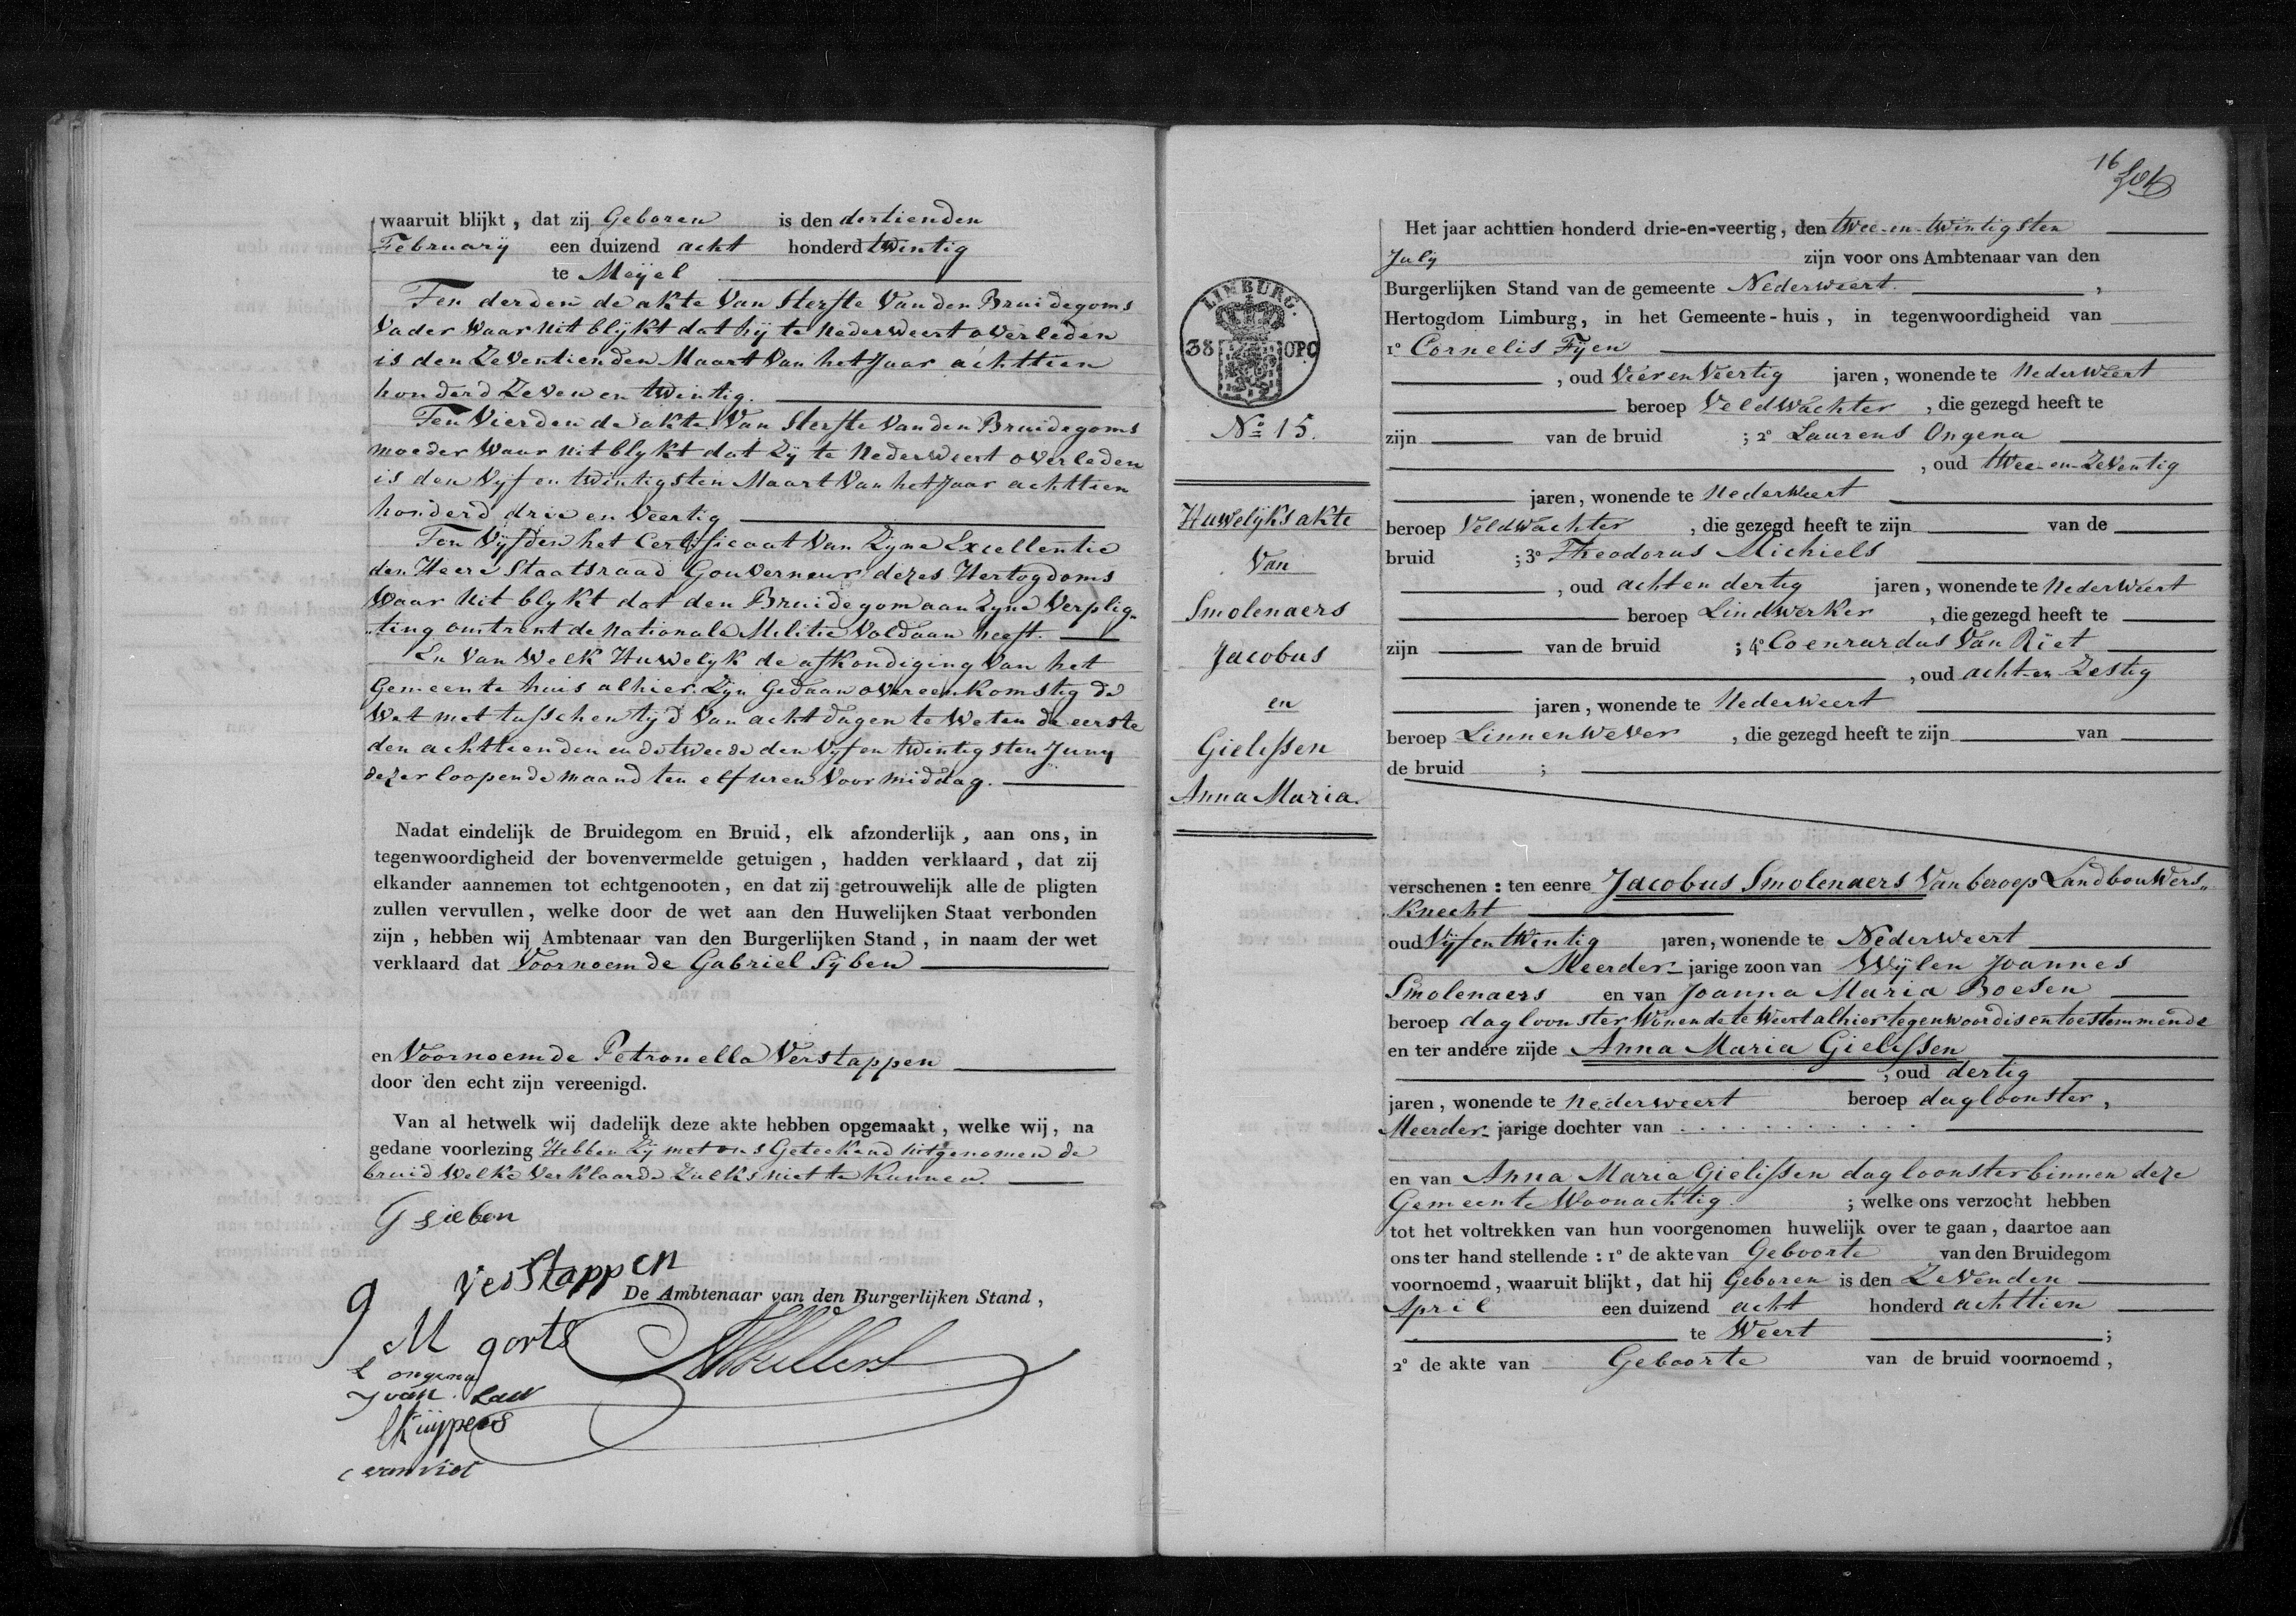 waaruit blijkt, dat zij Geboren is den dertienden
Februarij een duizend acht honderd twintig
te Meijel
Ten derden de akte Van Sterfte Van den Bruidegoms
Vader Waar uit blijkt dat hij te Nederweert overleden
is den Zeventienden Maart Van het Jaar achttien
honderd Zeven en twintig.
Ten Vierden de akte Van Sterfte Van den Bruidegoms
moeder Waar uit blykt dat Zy te Nederweert overleden
is den Vyf en twintigsten Maart Van het Jaar achttien
honderd drie en Veertig
Ten Vyfden het Certificaat Van Zyne Excellentie
den Heere Staatsraad Gouverneur dezes Hertogdoms
Waar Uit blykt dat den Bruidegom aan Zyne Verplig„
„ting omtrent de Nationale Militie Voldaan heeft.
En Van Welk Huwelyk de afkondiging Van het
Gemeente huis alhier Zyn Gedaan overeenkomstig de
Wet met tusschen tyd Van acht dagen te Weten de eerste
den achttienden en de tweede den Vyf en twintigsten Juny
dezer loopende maand ten elf uren Voor middag.
Nadat eindelijk de Bruidegom en Bruid, elk afzonderlijk, aan ons, in
tegenwoordigheid der bovenvermelde getuigen, hadden verklaard, dat zij
elkander aannemen tot echtgenooten, en dat zij getrouwelijk alle de pligten
zullen vervullen, welke door de wet aan den Huwelijken Staat verbonden
zijn, hebben wij Ambtenaar van den Burgerlijken Stand, in naam der wet
verklaard dat Voornoemde Gabriel Sijben
en Voornoemde Petronella Verstappen
door den echt zijn vereenigd.
Van al hetwelk wij dadelijk deze akte hebben opgemaakt, welke wij, na
gedane voorlezing Hebben Zij met ons Geteekend uitgenomen de
bruid Welke Verklaarde Zulks niet te Kunnen.
G sieben
g verstappen
De Ambtenaar van den Burgerlijken Stand,
M gorts
L ongena
J van Lau
Kuijpers
c van riet
16
Het jaar achttien honderd drie-en-veertig, den twee-en-twintigsten
July zijn voor ons Ambtenaar van den
Burgerlijken Stand van de gemeente Nederweert.,
Hertogdom Limburg, in het Gemeente-huis, in tegenwoordigheid van
1° Cornelis Fijen
, oud Vier en Veertig jaren, wonende te Nederweert
beroep Veldwachter, die gezegd heeft te
zijn van de bruid ; 2° Laurens Ongena
, oud twee-en-Zeventig
jaren, wonende te Nederweert
beroep Veldwachter, die gezegd heeft te zijn van de
bruid ; 3° Theodorus Michiels
, oud acht en dertig jaren, wonende te Nederweert
beroep Lindwerker, die gezegd heeft te
zijn van de bruid ; 4° Coenrardus Van Riet
, oud acht-en-Zestig
jaren, wonende te Nederweert
beroep Linnenwever, die gezegd heeft te zijn van
de bruid ;
LIMBURG.
38 OPC
N° 15.
Huwelijks akte
Van
Smolenaers
Jacobus
en
Gielissen
Anna Maria.
verschenen : ten eenre Jacobus Smolenaers Van beroep Landbouwers„
Knecht
oud Vijf en twintig jaren, wonende te Nederweert
Meerder-jarige zoon van Wijlen Joannes
Smolenaers en van Joanna Maria Boesen
beroep dagloonster Wonende te Weert alhier tegenwoordis en toestemmende
en ter andere zijde Anna Maria Gielissen
, oud dertig
jaren, wonende te Nederweert beroep dagloonster,
Meerder-jarige dochter van . . . . . . . . . . . .
en van Anna Maria Gielissen dagloonster binnen deze
Gemeente Woonachtig. ; welke ons verzocht hebben
tot het voltrekken van hun voorgenomen huwelijk over te gaan, daartoe aan
ons ter hand stellende : 1° de akte van Geboorte van den Bruidegom
voornoemd, waaruit blijkt, dat hij Geboren is den Zevenden
April een duizend acht honderd achttien
te Weert ;
2° de akte van Geboorte van de bruid voornoemd,